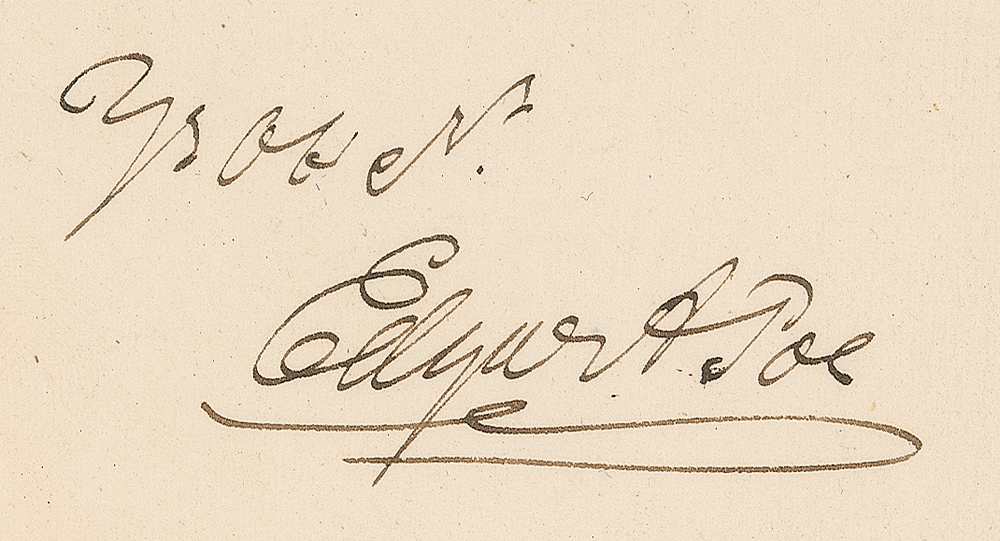 Yr Ob St.
Edgar A. Poe